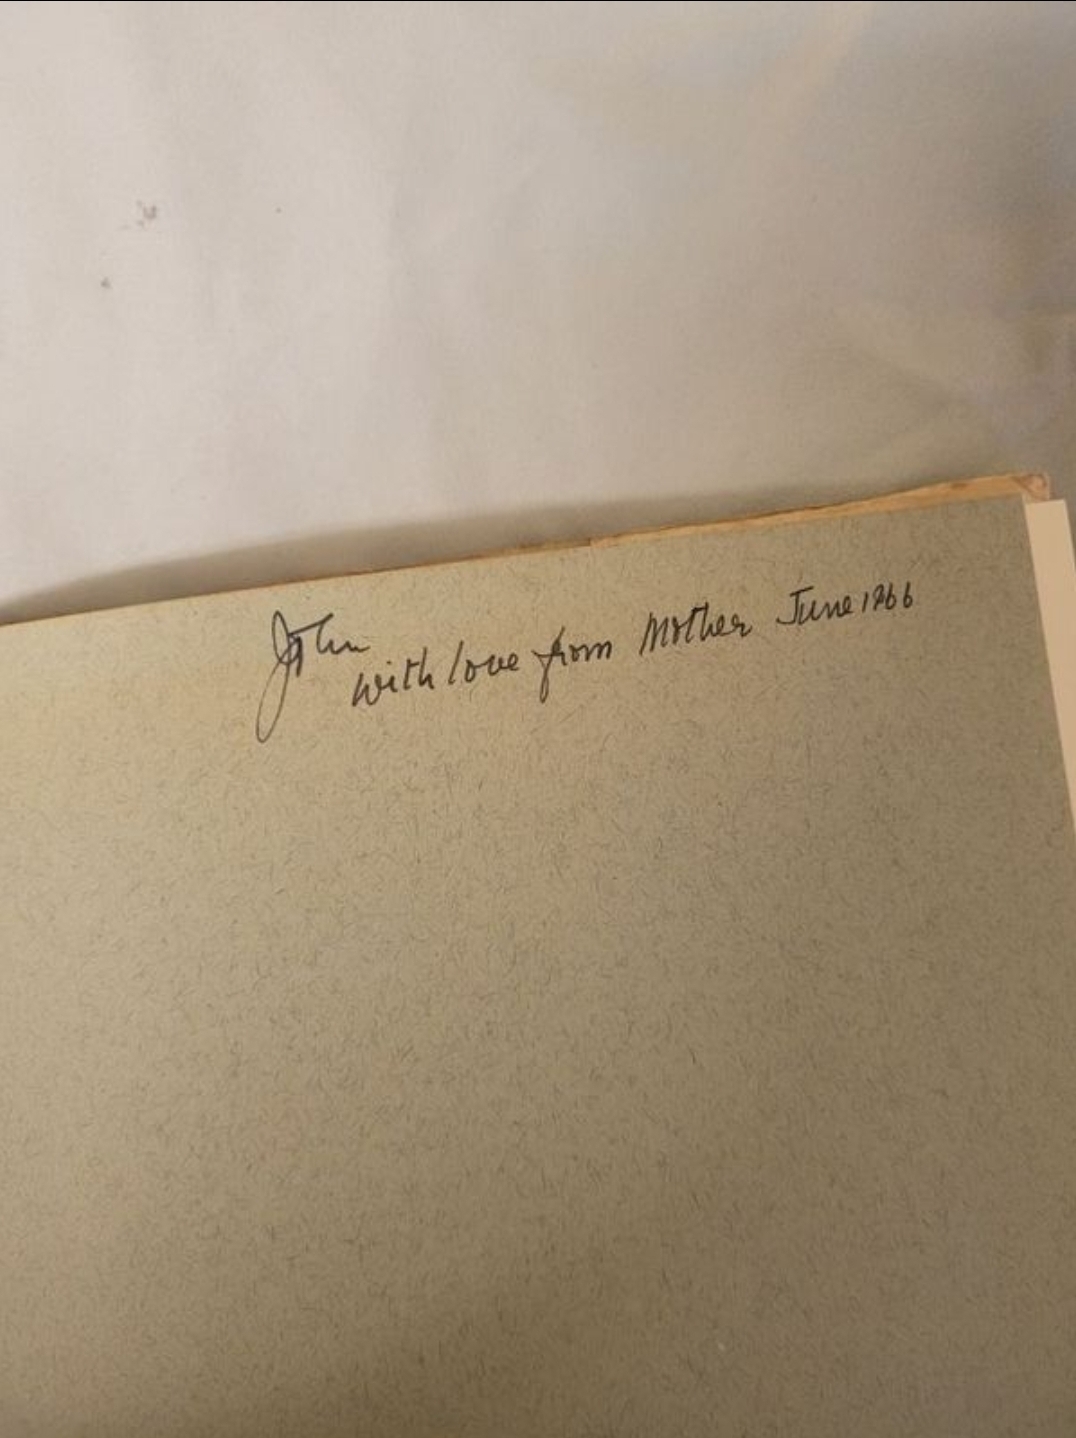 John
with love from Mother June 1966